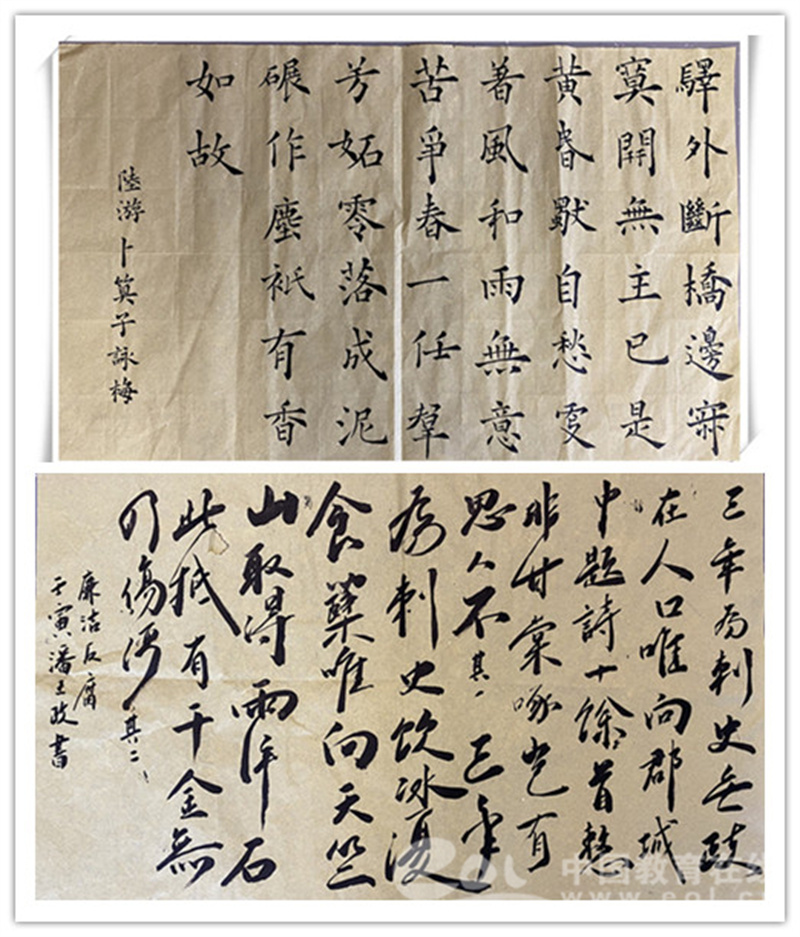 驛外斷橋邊寂
寞開無主已是
黄昏獨自愁更
著風和雨無意
苦爭春一任羣
芳妬零落成泥
碾作塵祇有香
如故
陸游卜算子詠梅
三年為刺史無政
在人口唯向郡城
中題詩十餘首慙
非甘棠詠豈有
思人不其一三年
為刺史飲冰復
食蘗唯向天竺
山取得兩片石
此抵有千金無
乃傷清其二
廉洁反腐
壬寅潘政書
eol 中国教育在线